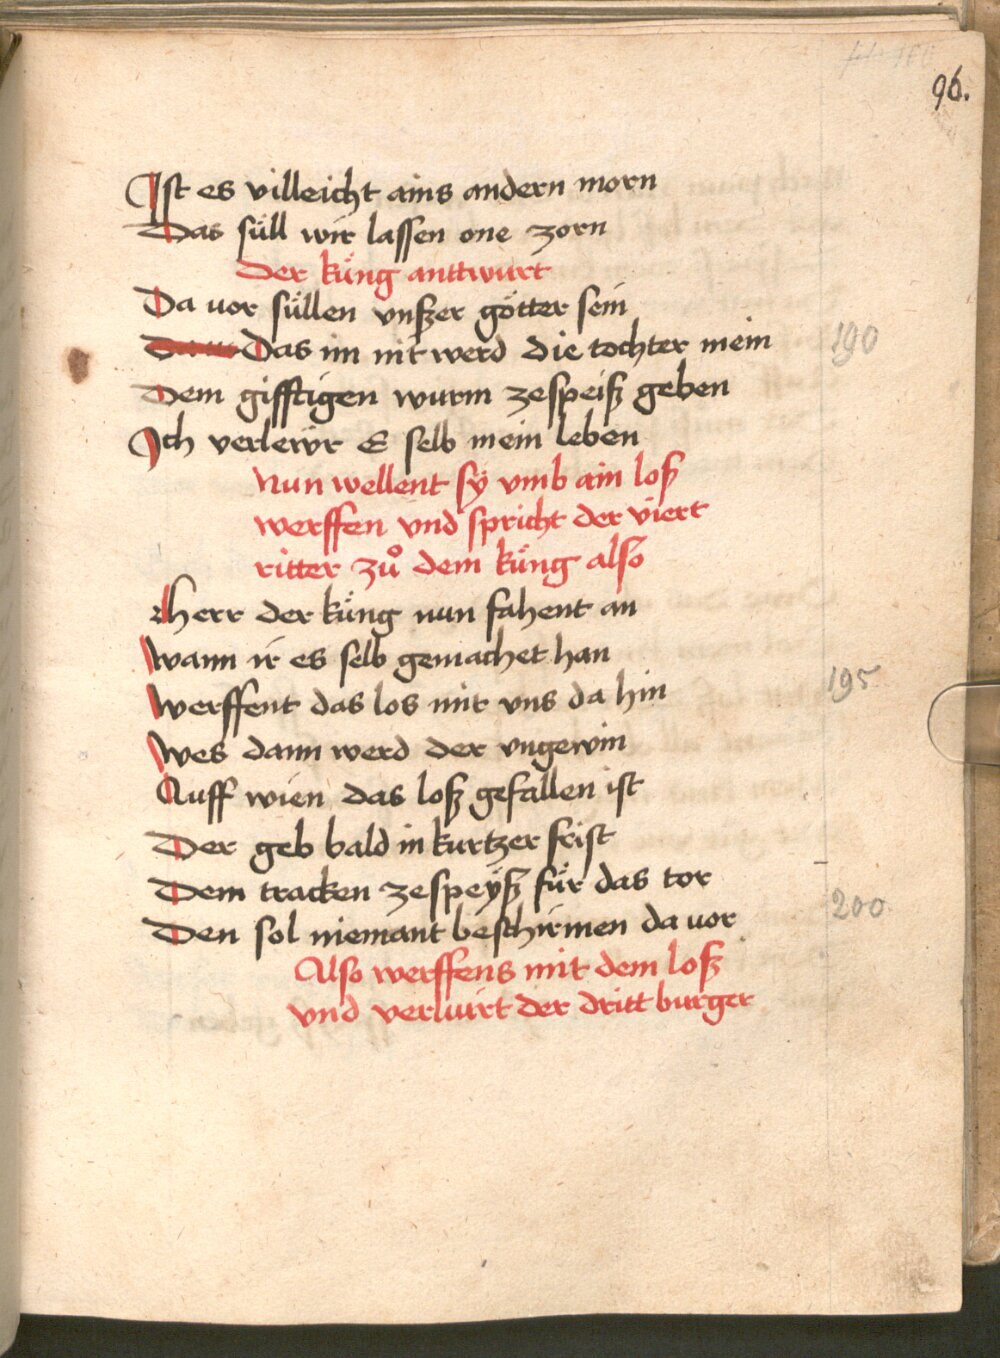 96.
Ist es villeicht ains andern morn
Das süll wir lassen one zorn
Der küng anttwurt
Da vor süllen vnßer götter sein
Das im nit werd die tochter mein
190
Dem gifftigen wurm zespeiß geben
Ich verlewr E selb mein leben
Nun wellent sÿ vmb ain loß
werffen vnd spricht der viert
ritter zuͦ dem küng also
Herr der küng nun fahent an
Wann ir es selb gemachet han
Werffent das los mit vns da hin
195
Wes dann werd der vngewin
Auff wien das loß gefallen ist
Der geb bald in kurtzer frist
Dem tracken zespeÿß für das tor
Den sol niemant beschirmen da vor
200
Also werffens mit dem loß
vnd verlurt der dritt burger